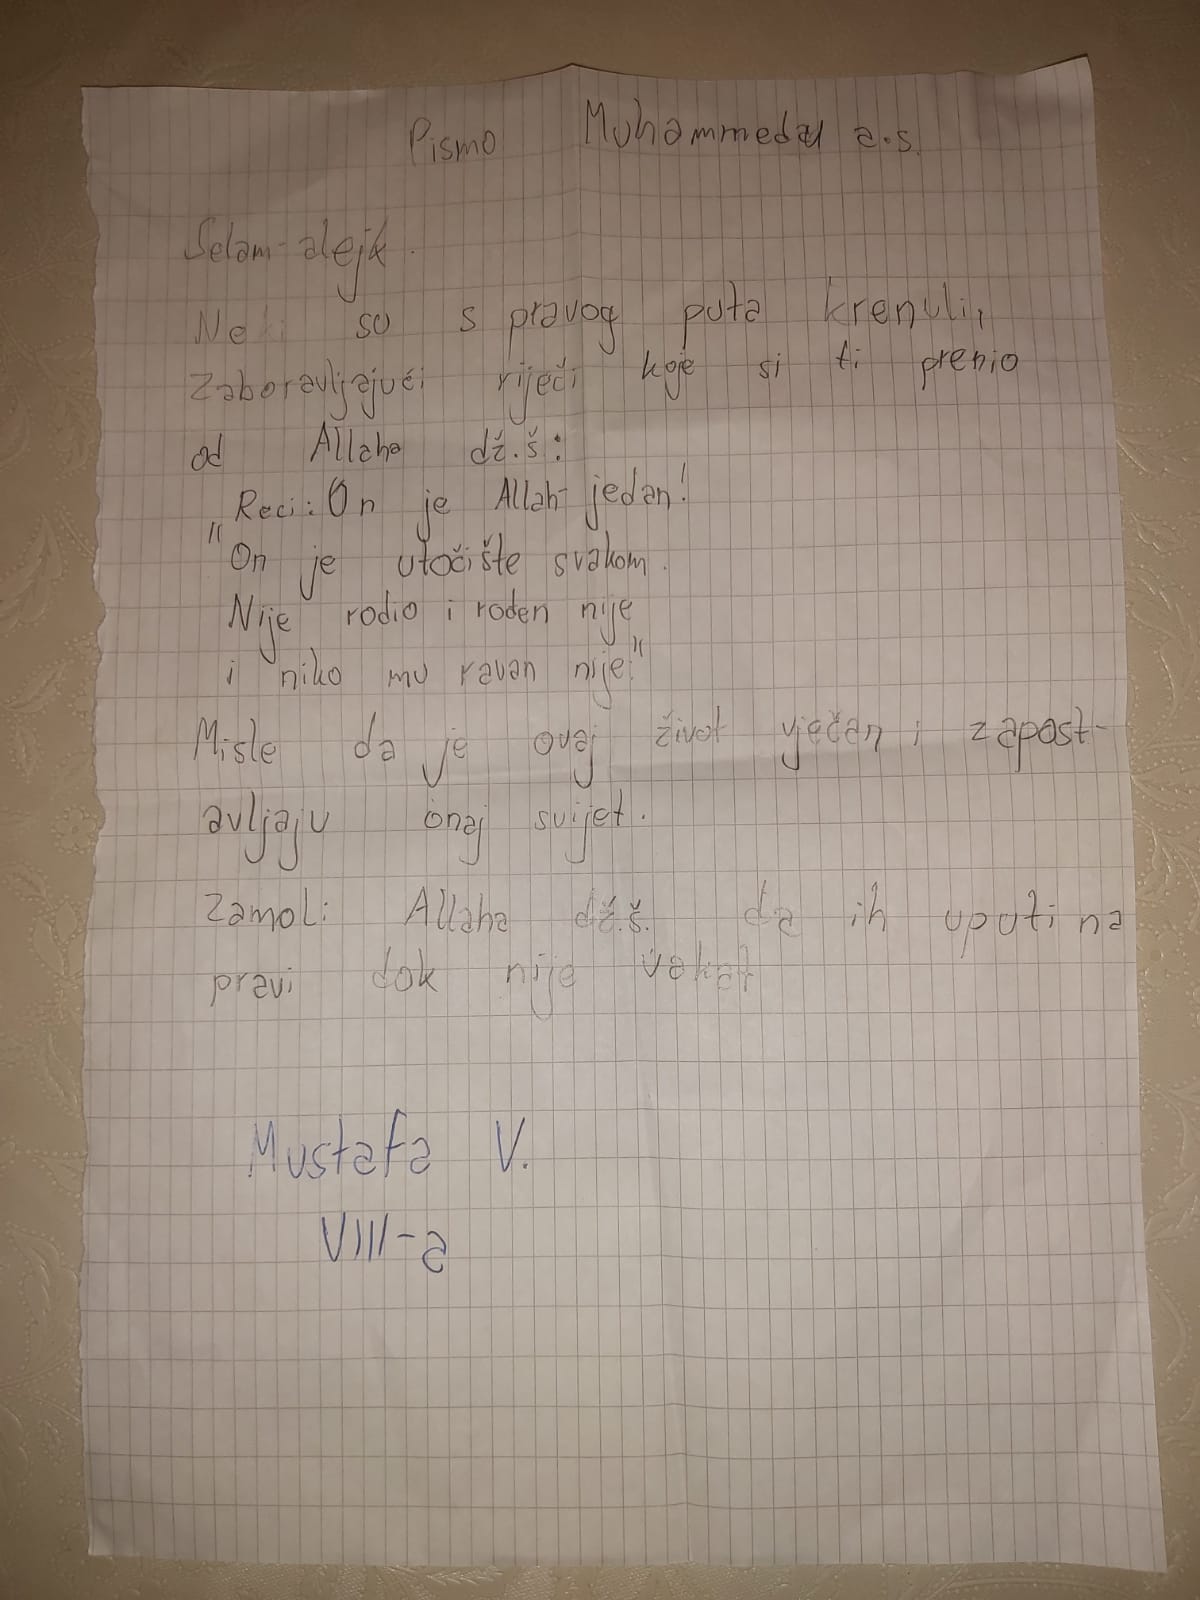 Pismo Muhammedu a.s.
Selam-alejk.
Neki su s pravog puta krenuli,
zaboravljajući riječi koje si ti prenio
od Allaha dž.š:
"Reci: On je Allah- jedan!
On je utočište svakom.
Nije rodio i rođen nije
i niko mu ravan nije."
Misle da je ovaj život vječan i zapost-
avljaju onaj svijet.
Zamoli Allaha dž.š. da ih uputi na
pravi dok nije vakat
Mustafa V.
VIII-a